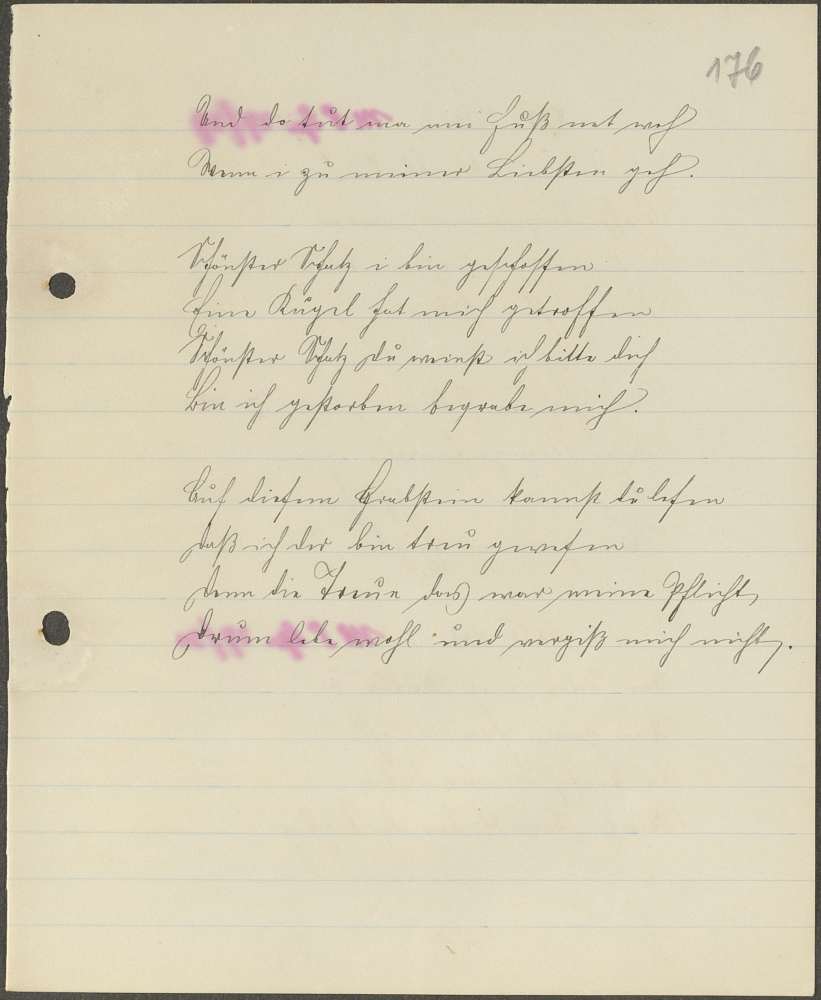 176
Und do tut ma mei Fuß net weh
Wenn i zu meiner Liebsten geh.
Schönster Schatz i bin geschossen
Eine Kugel hat mich getroffen
Schönster Schatz du weinst ich bitte dich
Bin ich gestorben begrabe mich.
Auf diesem Grabstein kannst du lesen
daß ich der bin treu gewesen
denn die Treue das war meine Pflicht,
drum lebe wohl und vergiß mich nicht,.